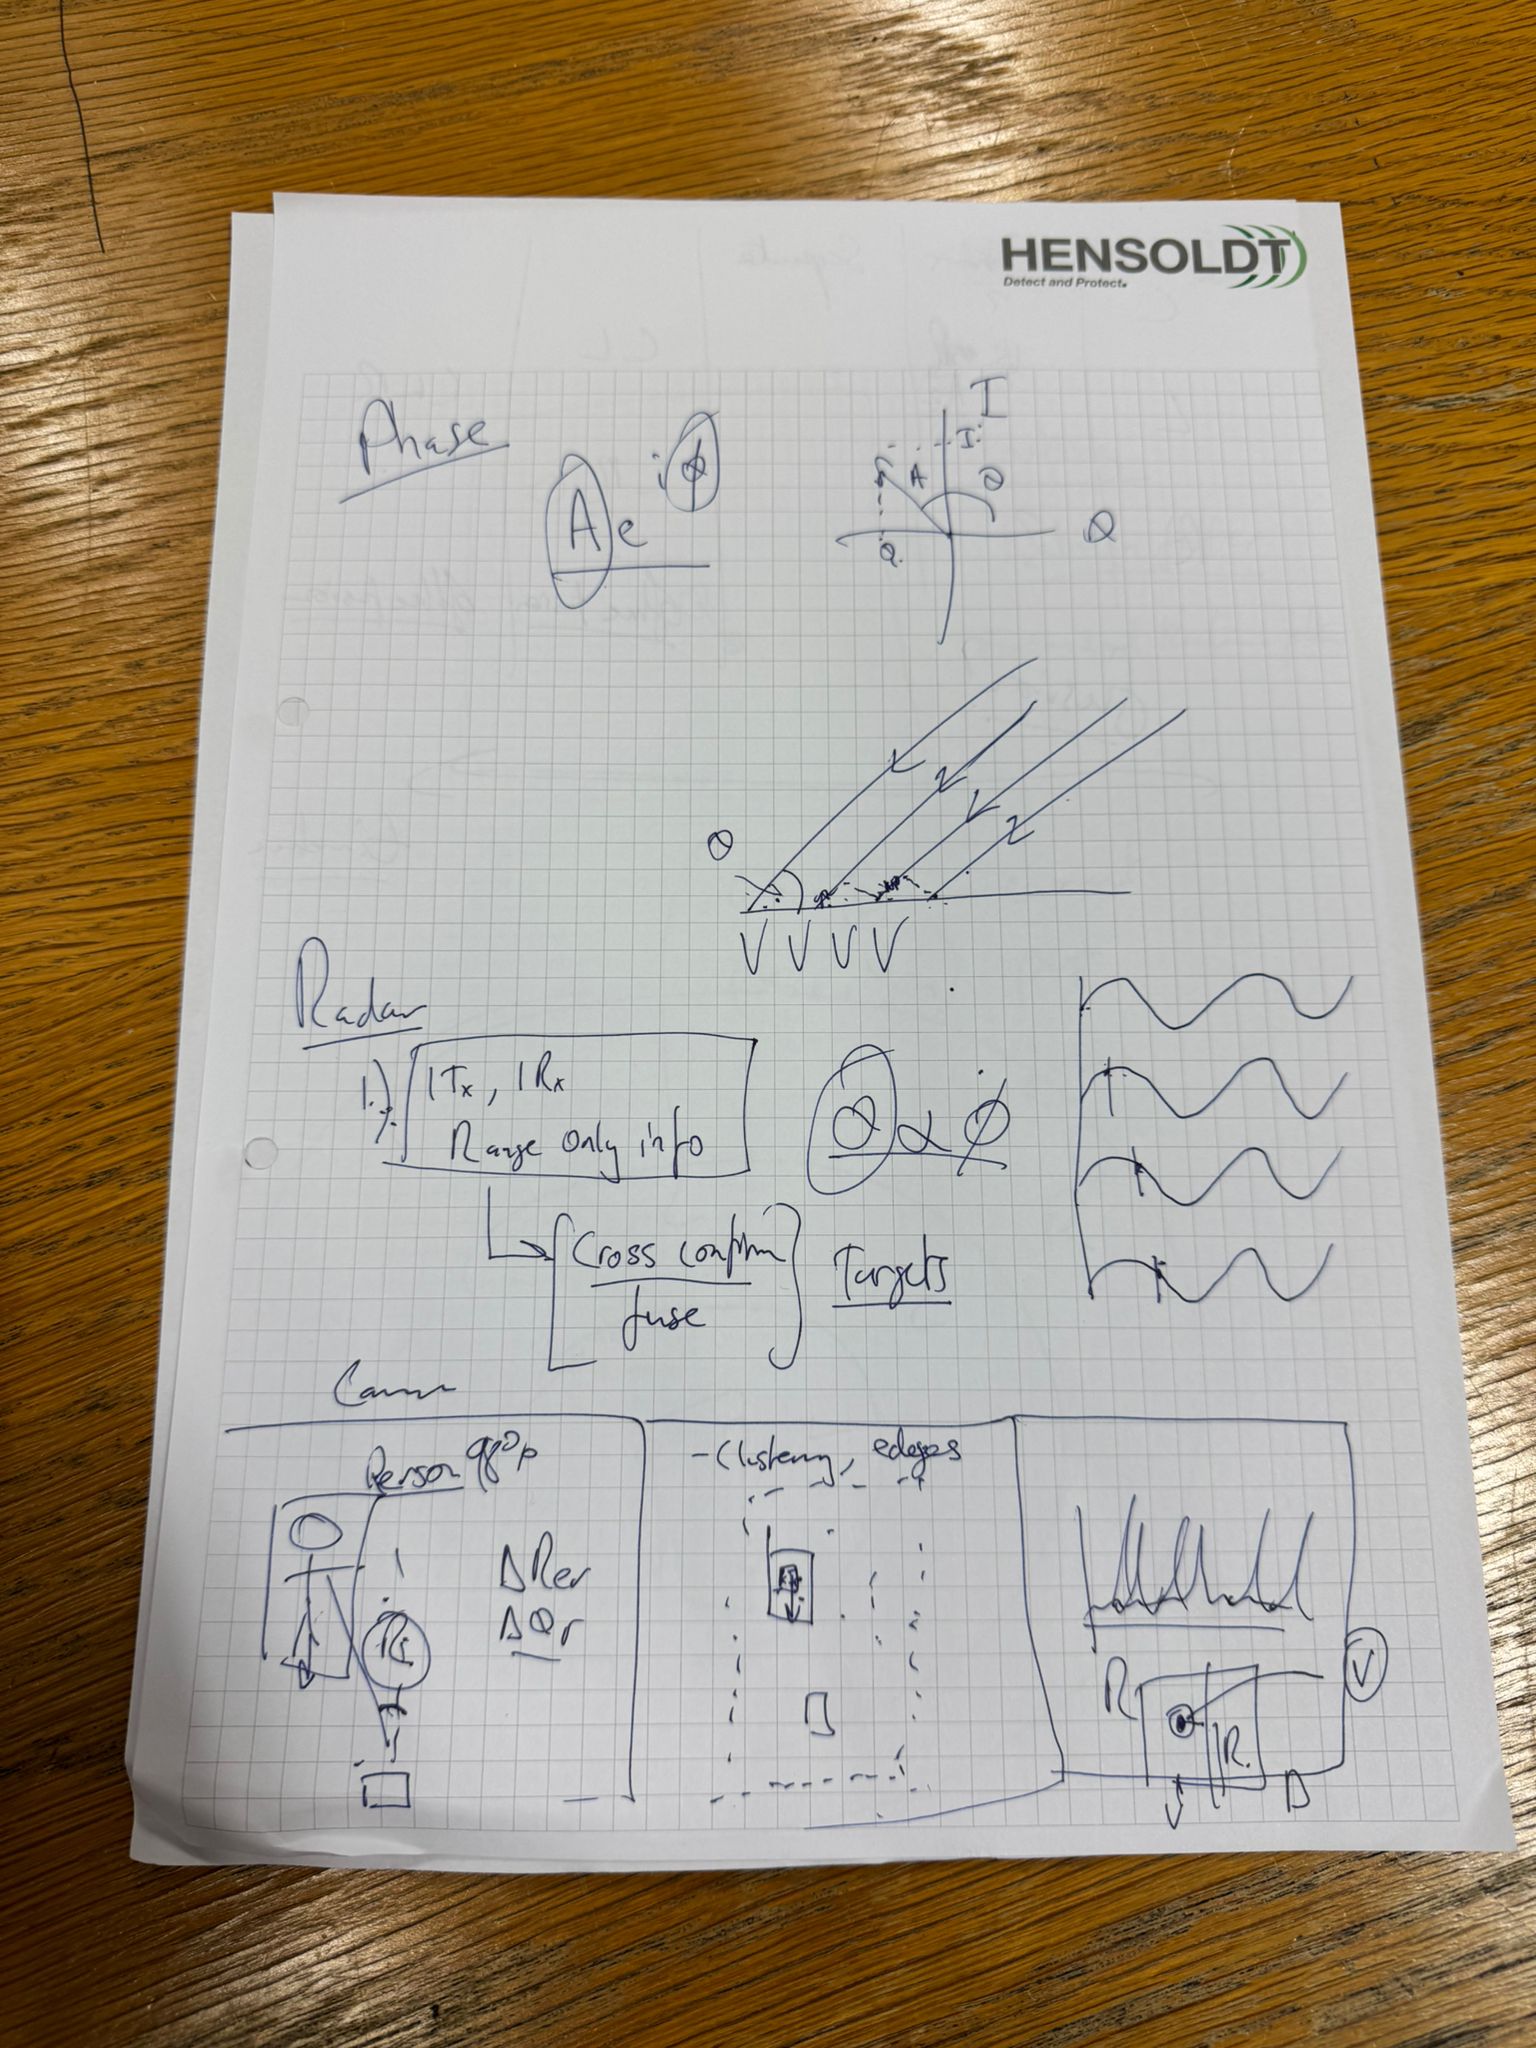 HENSOLDT
Detect and Protect.
Phase
A e iϕ
I
I
A
θ
Q
Q
θ
V V V V
Radar
1.)
1Tx, 1Rx
Range only info
θ α ϕ
Cross confirm
fuse
Targets
Person 98%
- Clustering, edges
Δ
Δθr
R
R
V
D